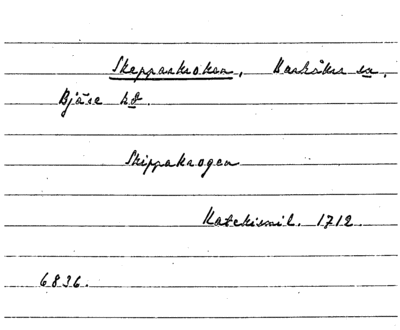 Skepparkroken, Barkåkra sn,
Bjäre hd.
Skippakrogen
Katekismil. 1712.
6836.